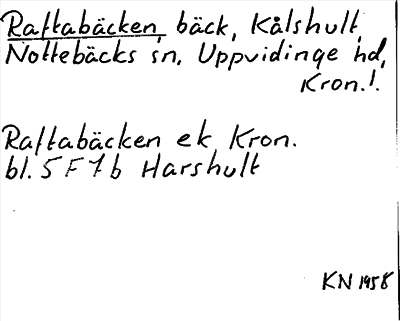 Raftabäcken, bäck, Kålshult,
Nottebäcks sn, Uppvidinge hd,
Kron.l.
Raftabäcken ek Kron.
bl. 5 F 7 b Harshult
KN 1958